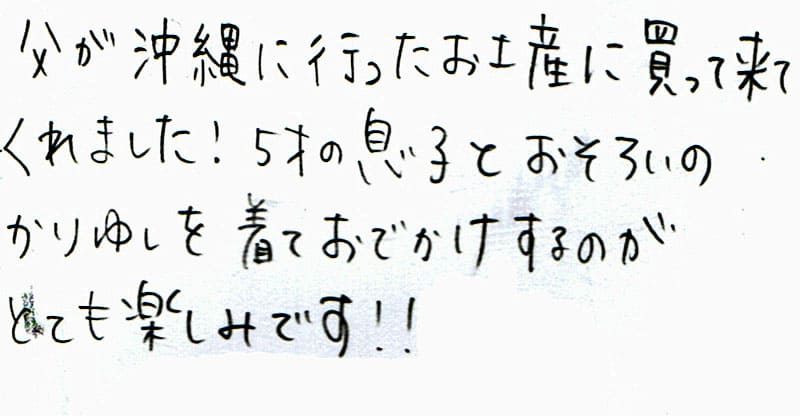 父が沖縄に行ったお土産に買って来て
くれました!5才の息子とおそろいの
かりゆしを着ておでかけするのが
とても楽しみです!!